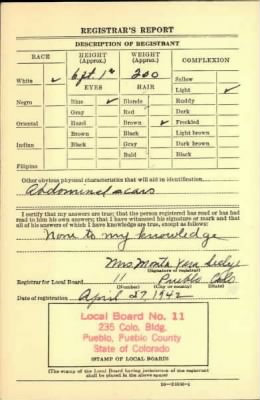 REGISTRAR'S REPORT
DESCRIPTION OF REGISTRANT
RACE HEIGHT (Approx.) WEIGHT (Approx.) COMPLEXION
White ✓ 6 ft. 1" 200 Sallow
EYES HAIR Light ✓
Negro Blue ✓ Blonde Ruddy
Gray Red Dark
Oriental Hazel Brown ✓ Freckled
Brown Black Light brown
Indian Black Gray Dark brown
Bald Black
Filipino
Other obvious physical characteristics that will aid in identification
Abdominal scars
I certify that my answers are true; that the person registered has read or has had
read to him his own answers; that I have witnessed his signature or mark and that
all of his answers of which I have knowledge are true, except as follows:
None to my knowledge
Mrs. Monta Vera
(Signature of registrar)
Registrar for Local Board 11 Pueblo Colo.
(Number) (City or county) (State)
Date of registration April 27, 1942
Local Board No. 11
235 Colo. Bldg.
Pueblo, Pueblo County
State of Colorado
(STAMP OF LOCAL BOARD)
(The stamp of the Local Board having jurisdiction of the registrant
shall be placed in the above space)